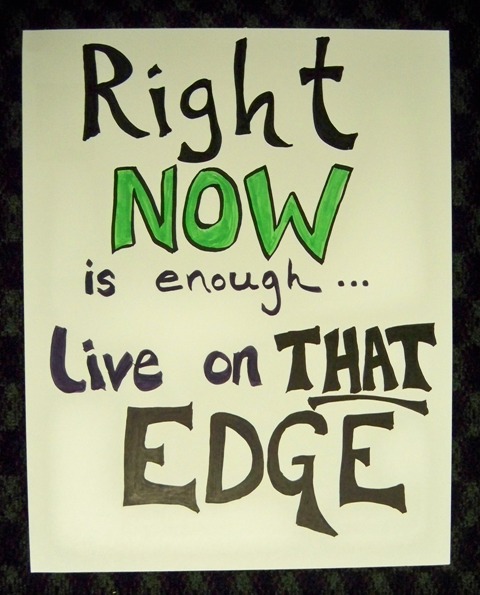 Right
NOW
is enough...
Live on THAT
EDGE